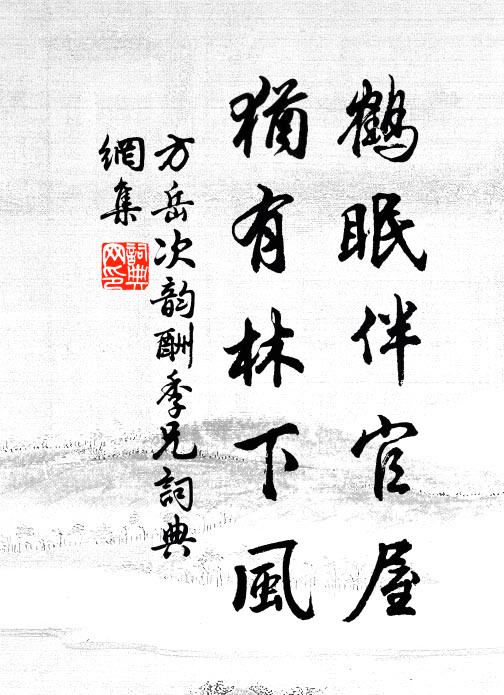 鶴眠伴官屋
猶有林下風
方岳次韵酬季兄詞典
網集
詞典
网印